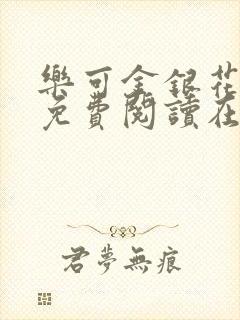 樂可金銀花
免費閱讀在
君夢無痕